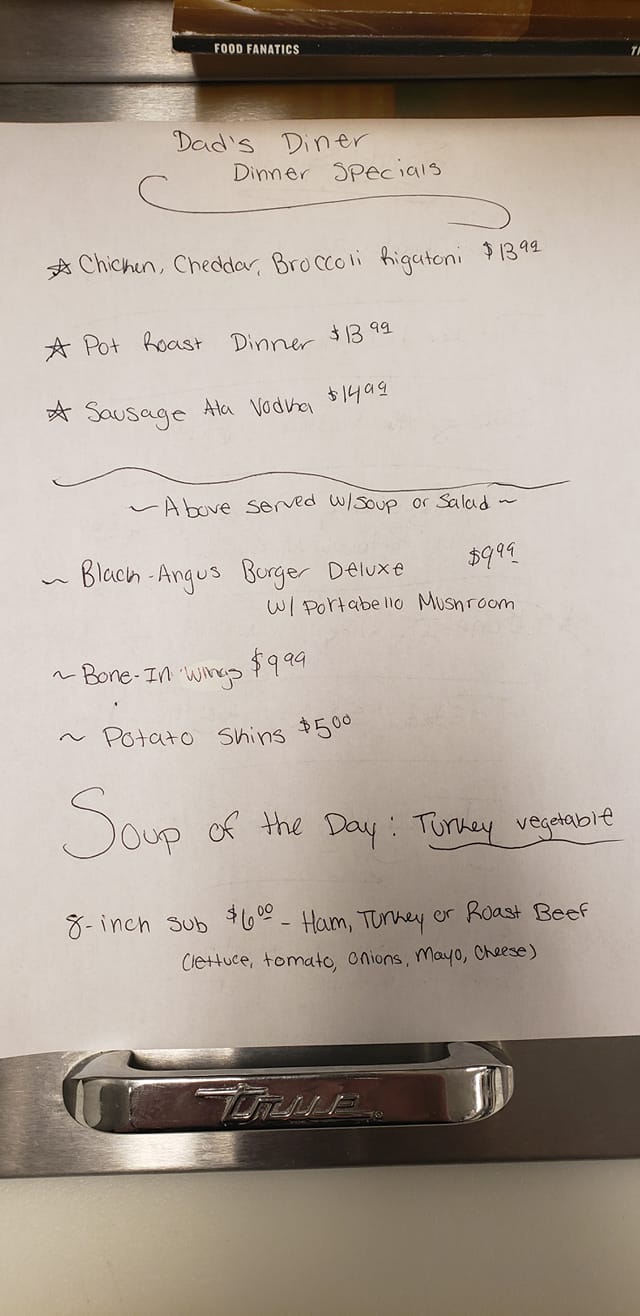 FOOD FANATICS
Dad's Diner
Dinner Specials
☆ Chicken, Cheddar, Broccoli Rigatoni $13.99
☆ Pot Roast Dinner $13.99
☆ Sausage Ala Vodka $14.99
~ Above served w/soup or Salad ~
~ Black-Angus Burger Deluxe $9.99
w/ Portabello Mushroom
~ Bone-In Wings $9.99
~ Potato Skins $5.00
Soup of the Day: Turkey vegetable
8-inch sub $6.00 - Ham, Turkey or Roast Beef
(lettuce, tomato, onions, Mayo, Cheese)